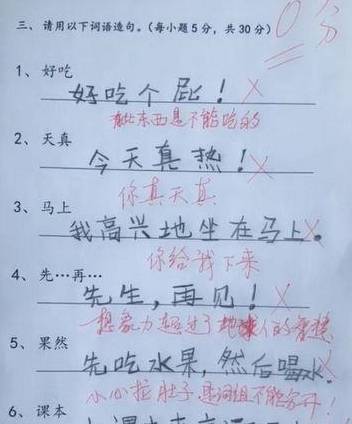 三、请用以下词语造句。（每小题5分，共30分）
0分
1、好吃
好吃个屁！
此东西是不能吃的
2、天真
今天真热！
你真天真
3、马上
我高兴地坐在马上。
你给我下来
4、先…再…
先生，再见！
想象力超过了地球人的
5、果然
先吃水果，然后喝水。
小心拉肚子 是词组不能分开！
6、课本